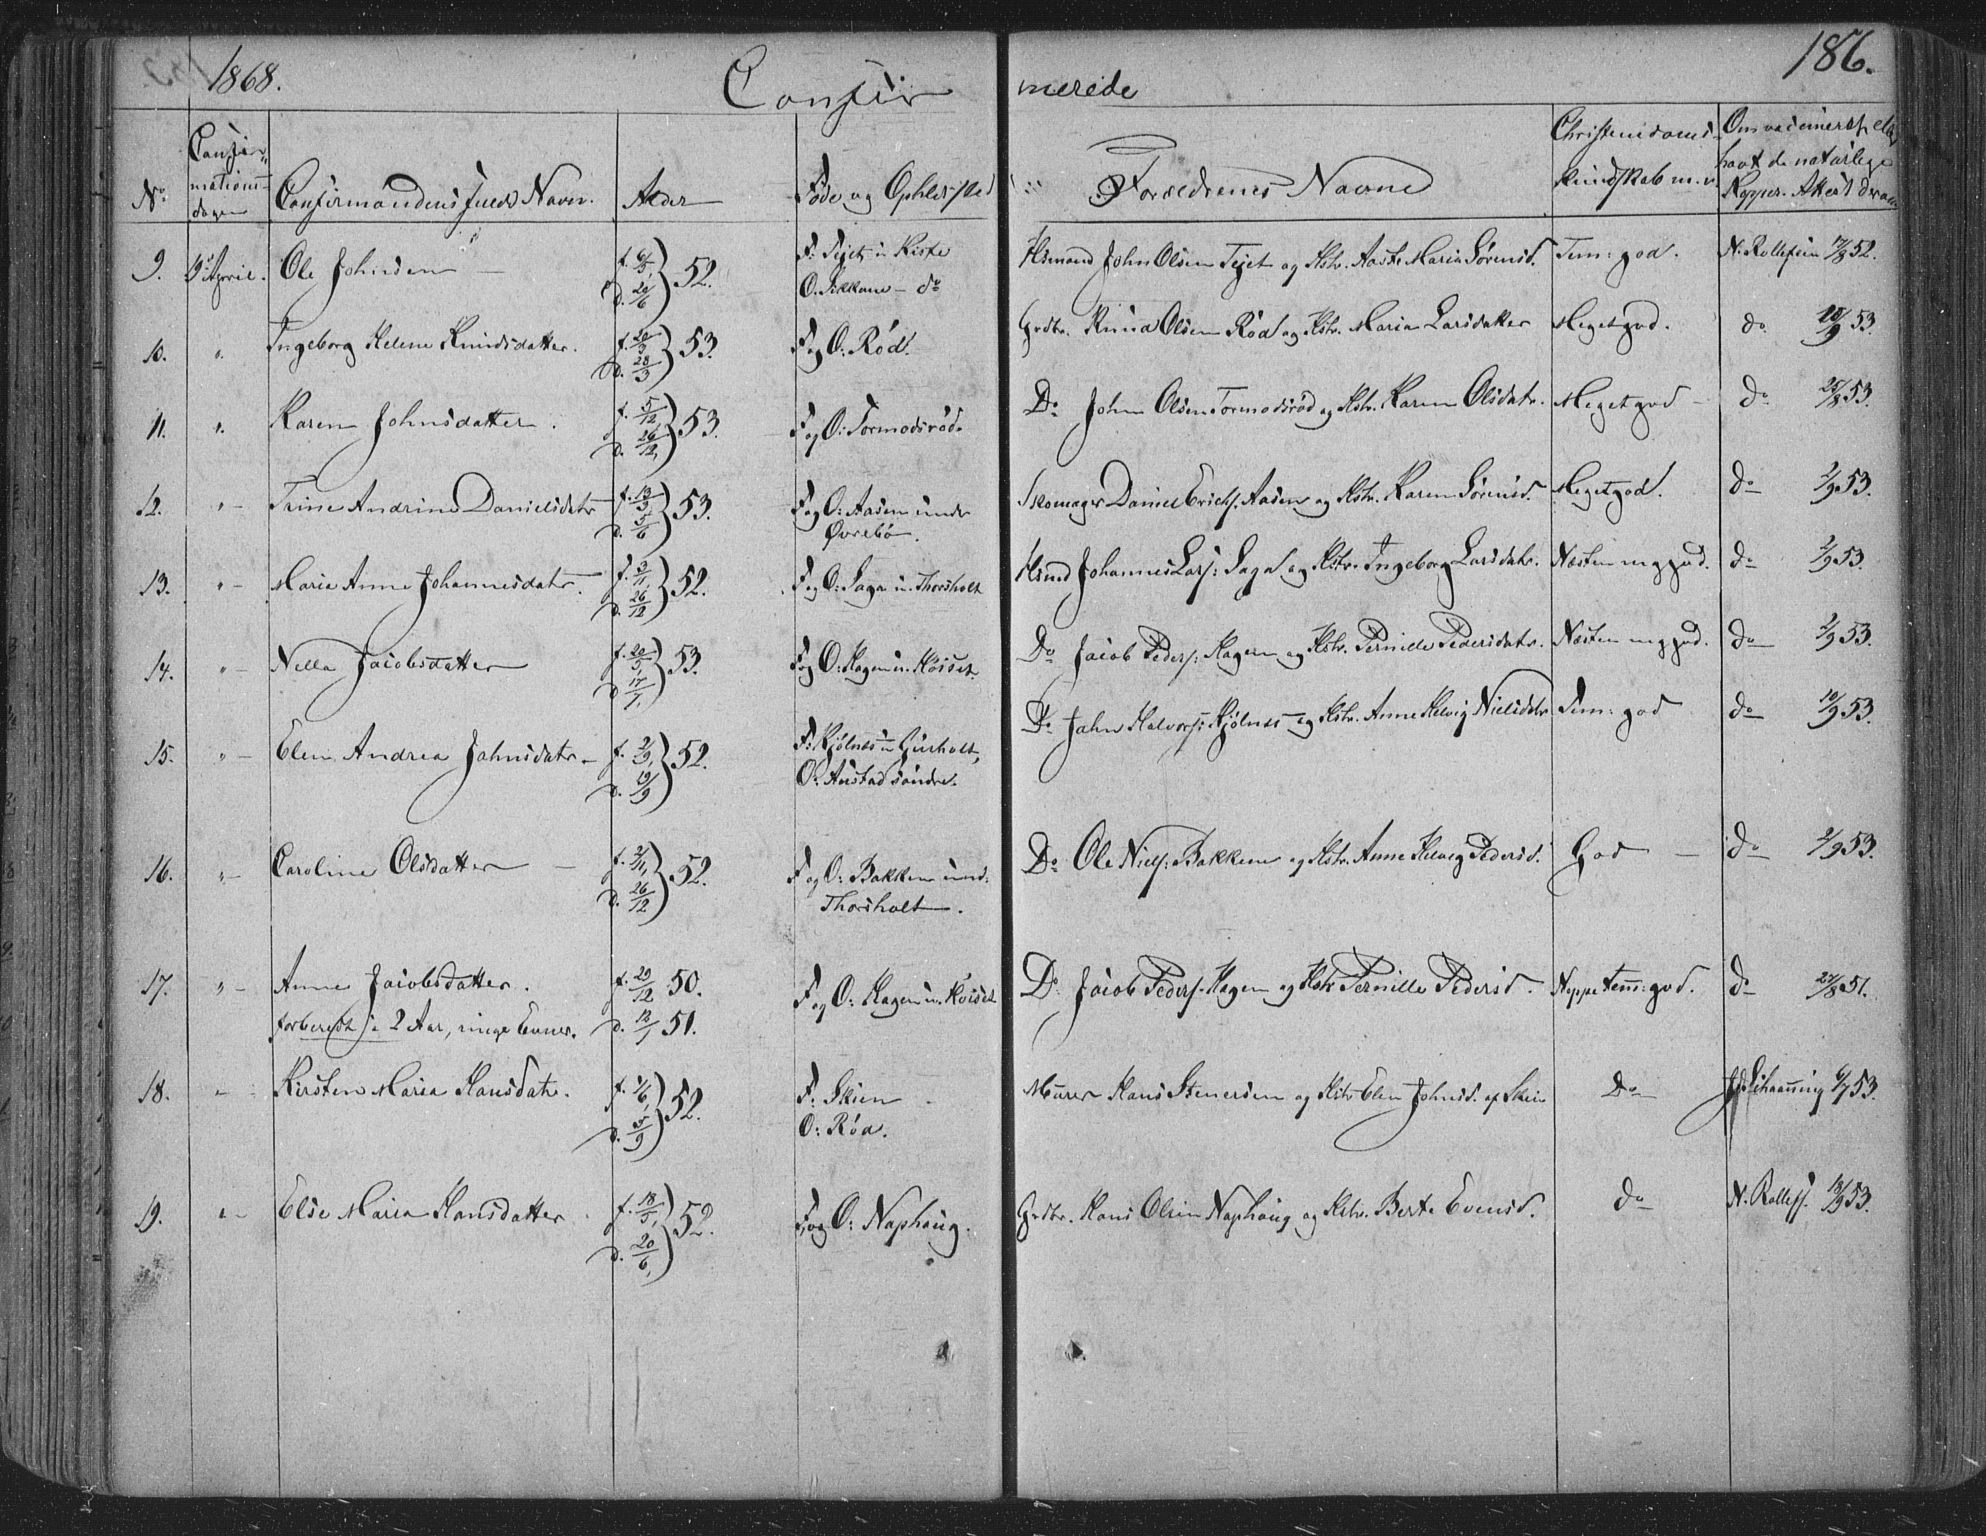 1868. Confir merede 186.
No. Confir- mations- dagen Confirmandens fulde Navn. Alder Føde og Opholdssted Forældrenes Navne Christendoms- kundskab m. v. Om vaccineret el. havt de naturlige Kopper. Attest
9. April. Ole Johnsen f. 6/5, d. 20/6 } 52. F: Tejet u. Kiste O: Fikkane - do Hsmand John Olsen Tejet og Hstr. Aaste Maria Sørensd. Tem: god. N. Rollefsen 17/8 52.
10. " Ingeborg Helene Knudsdatter. f. 20/3 d. 28/3 } 53. F og O: Rød. Grdbr. Knud Olsen Rød og Hstr. Maria Larsdatter Meget god. do 10/9 53.
11. " Karen Johnsdatter. f. 5/12 d. 26/12 } 53. F og O: Tormodsrød. Do John Olsen Tormodsrød og Hstr. Karen Olsdatr. Meget god - do 28/8 53.
12. " - Trine Andrine Danielsdatr f. 13/3 d. 5/6 } 53. F og O: Aasen under Øvrebø. Skomager Daniel Erichs. Aasen og Hstr. Karen Sørensd. Meget god. do 2/9 53.
13. " - Maria Anne Johannesdatr. f. 3/11 d. 26/12 } 52. F og O: Saga u. Thorsholt Hsmd Johannes Lars: Saga og Hstr. Ingeborg Larsdatr. Næsten mg god. do 2/9 53.
14. " - Nella Jacobsdatter f. 20/5, d. 17/7. } 53. F og O: Hagen u. Høiset. Do Jacob Peders: Hagen og Hstr. Pernille Pedersdatr. Næsten mg god. do 2/9 53.
15. " - Elen Andrea Johnsdatr - f. 2/9, d. 19/9 } 52. F: Kjølnes u. Gurholt, O: Austad søndre. Do John Halvors: Kjølnes og Hstr. Anne Helvig Nielsdatr Tem: god do 10/9 53.
16. " - Caroline Olsdatter - f. 2/11, d. 26/12 } 52. F og O: Bakken und: Thorsholt. Do Ole Niels: Bakken og Hstr. Anne Helvig Pedersd. God - do 2/9 53.
17. " - Anne Jacobsdatter. forberedt i 2 Aar, ringe Evner. f. 29/12 50. d. 12/1 51. F og O: Hagen u. Høiset Do Jacob Peders: Hagen og Hstr Pernille Pedersd. Neppe tem: god. do 28/8 51.
18. " - Kirsten Maria Hansdatr. f. 1/6, d. 5/9 } 52. F: Skien O: Rød. Murer Hans Stenersen og Hstr Elen Johnsd. af Skien Do Schaanning 6/7 53.
19. " - Else Maria Hansdatter f. 18/5, d. 20/6, } 52. F, og O: Naphoug. Grdbr. Hans Olsen Naphoug og Hstr. Berte Evensd. do N. Rollefs. 13/9 53.